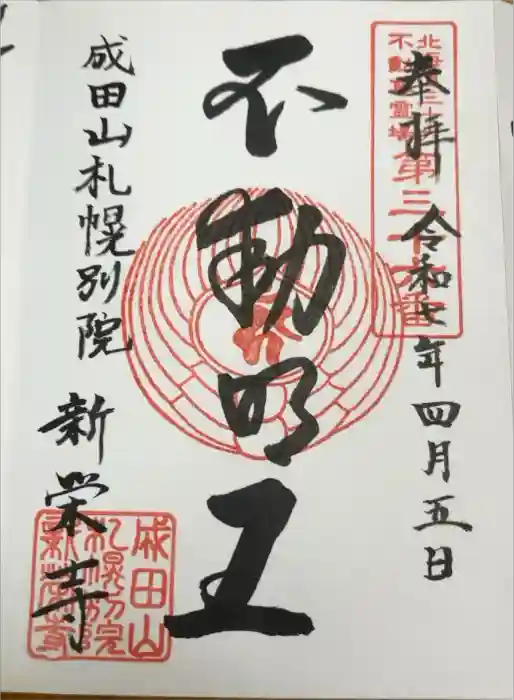 奉拝 令和七年四月五日
北海道三十六
不動尊霊場
第三十六番
不動明王
成田山札幌別院 新栄寺
成田山
札幌別院
新栄寺